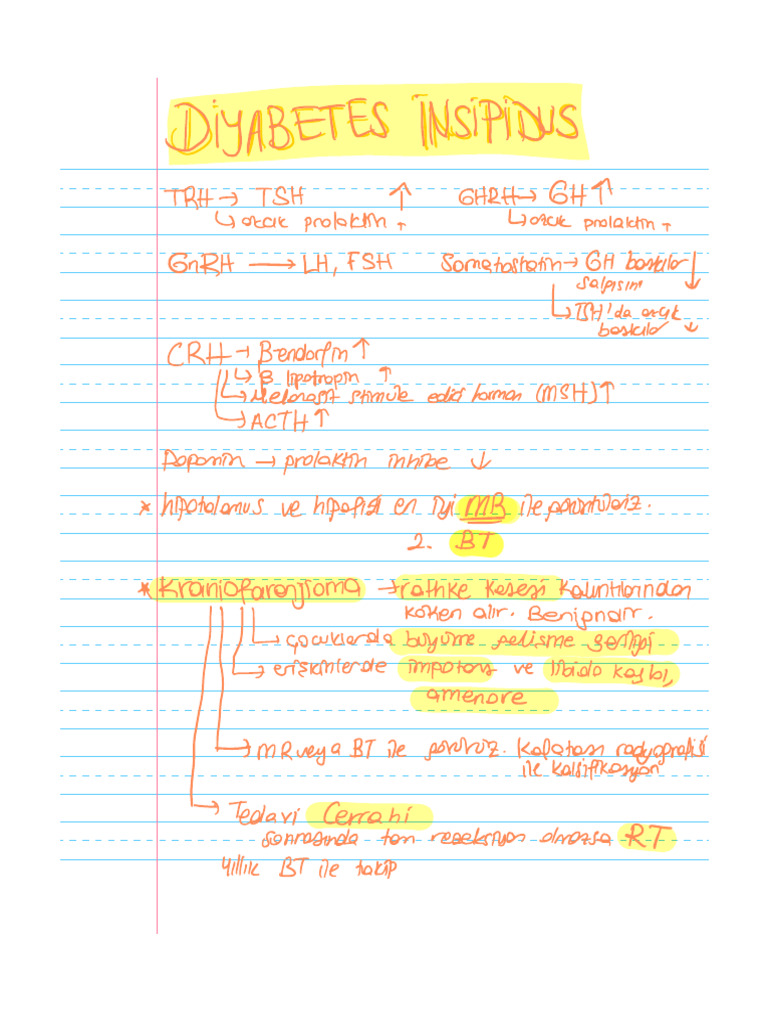 DİYABETES İNSİPİDUS
TRH → TSH ↑
↳ azcık prolaktin ↑
GHRH → GH ↑
↳ azcık prolaktin ↑
GnRH → LH, FSH
Somatostatin → GH baskılar ↓
salpısını
→ TSH'da azcık
baskılar ↓
CRH → Bendorfin ↑
↳ B lipotropin ↑
→ Melonosit stimüle edici hormon (MSH) ↑
→ ACTH ↑
Dopamin → prolaktin inhibe ↓
* hipotalamus ve hipofizi en iyi MR ile görüntüleriz.
2. BT
* Kraniofarenjioma → rathke kesesi kalıntılarından
köken alır. Benigndir.
→ çocuklarda büyüme gelişme geriliği
→ erişkinlerde impotans ve libido kaybı,
amenore
→ MR veya BT ile görürüz. Kafatası radyografisi
ile kalsifikasyon
→ Tedavi Cerrahi
sonrasında tam rezeksiyon olmazsa RT
Yıllık BT ile takip